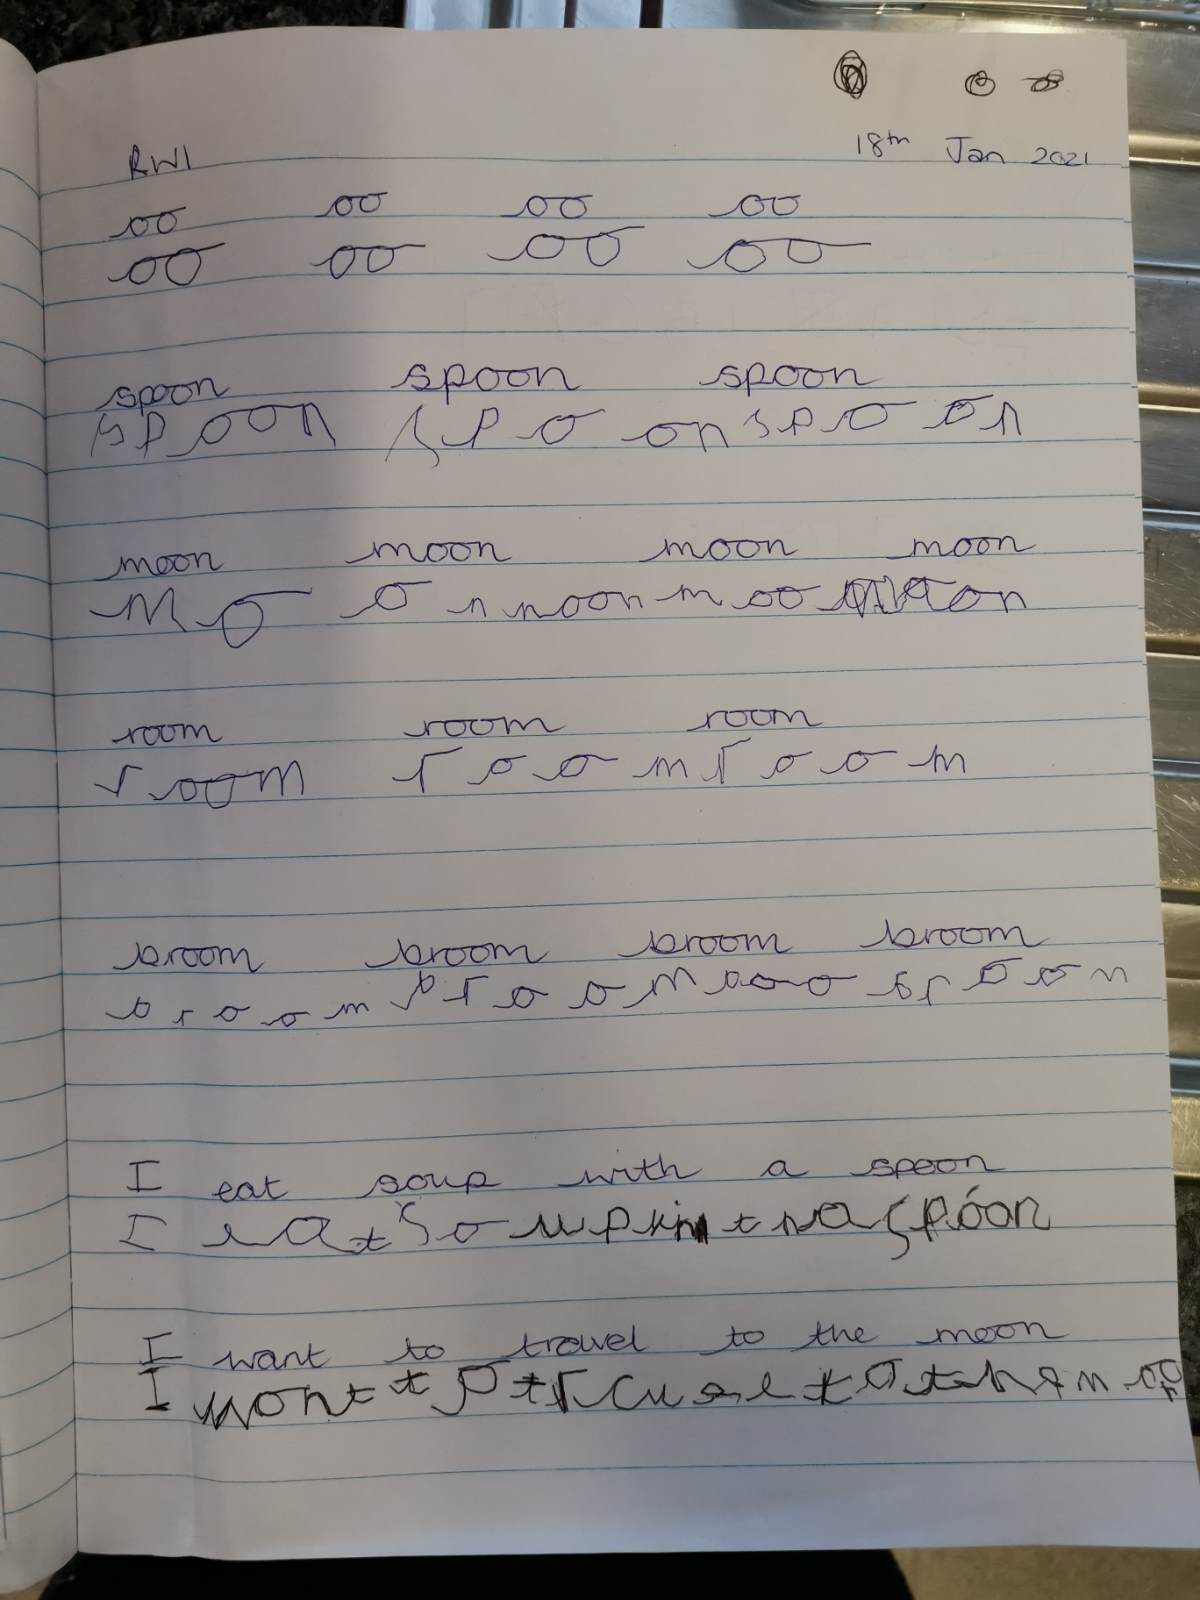 RWI 18th Jan 2021
oo oo oo oo
oo oo oo oo
spoon spoon spoon
spoon spo on spoon
moon moon moon moon
mo o n noon moo on
room room room
room room room
broom broom broom broom
broom broom ooo broon
I eat soup with a spoon
I eat soup a spoon
I want to travel to the moon
I wont to to